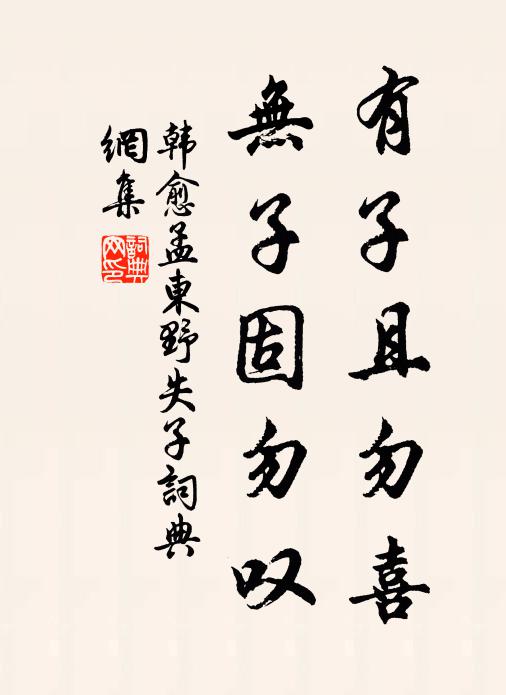 有子且勿喜
無子固勿叹
韩愈孟東野失子詞典
網集
詞典网印